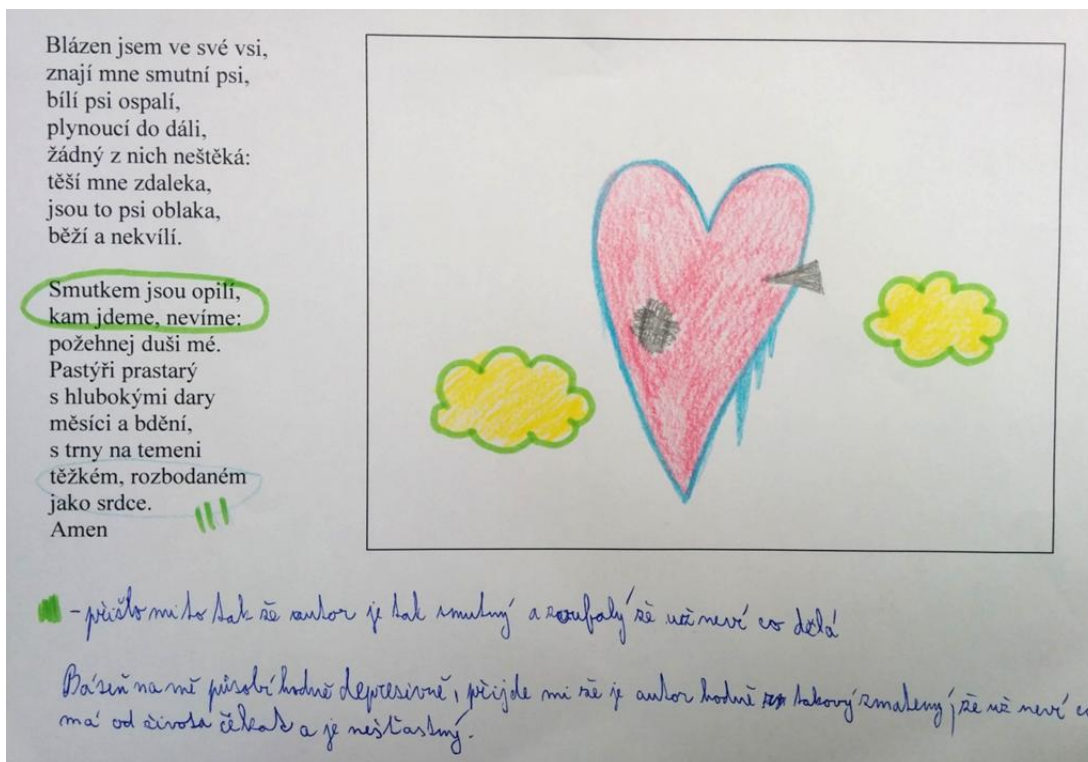 Blázen jsem ve své vsi,
znají mne smutní psi,
bílí psi ospalí,
plynoucí do dáli,
žádný z nich neštěká:
těší mne zdaleka,
jsou to psi oblaka,
běží a nekvílí.
Smutkem jsou opilí,
kam jdeme, nevíme:
požehnej duši mé.
Pastýři prastarý
s hlubokými dary
měsíci a bdění,
s trny na temeni
těžkém, rozbodaném
jako srdce.
Amen
- přišlo mi to tak že autor je tak smutný a zoufalý že už neví co dělá
Báseň na mě působí hodně depresivně, přijde mi že je autor hodně takový zmatený, že už neví co
má od života čekat a je nešťastný.